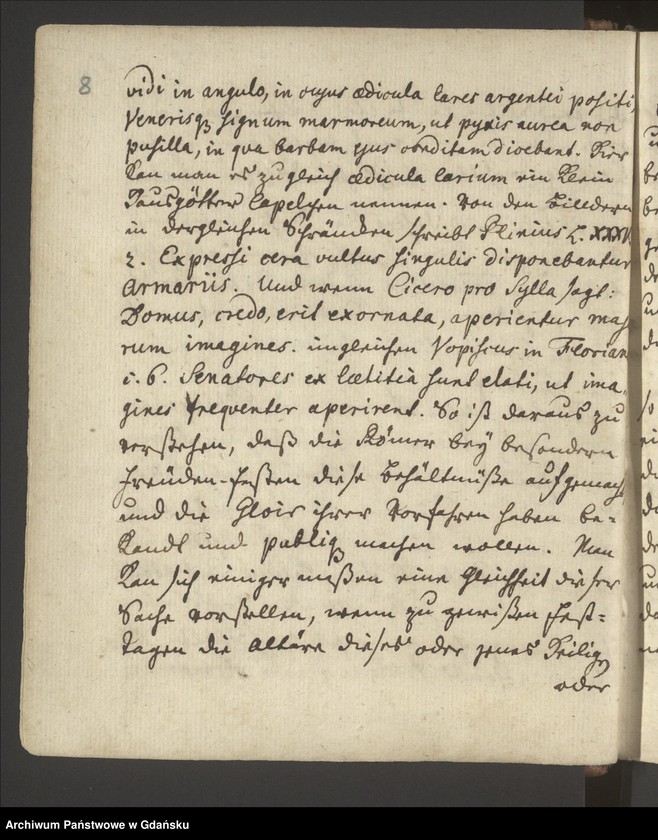 8
vidi in angulo, in cujus ædicula lares argentei positi,
Venerisq; signum marmoreum, ut pyxis aurea non
pusilla, in qua barbam ejus conditam dicebant. Hier
kan man es zugleich ædicula larium ein klein
Hausgötter Capelchen nennen. Von den Billdern
in dergleichen Schränden schreibt Plinius L. XXXV
2. Expressi cera vultus singulis disponebantur
armariis. Und wenn Cicero pro Sylla sagt:
Domus, credo, erit exornata, aperientur majo
rum imagines. ungleichen Vopiscus in Florian
c. 6. Senatores ex lætitia sunt elati, ut ima,
gines frequenter aperirent. So ist daraus zu
verstehen, daß die Römer bey besondern
Freuden-Festen diese Behältnüße aufgemacht
und die Glois ihrer Vorfahren haben be=
kandt und publiq; machen wollen. Man
kan sich einiger maßen eine Gleichheit dieser
Sache vorstellen, wenn zu gewißen Fest=
tagen die Altäre dieses oder jenes Heilig
oder
Archiwum Państwowe w Gdańsku